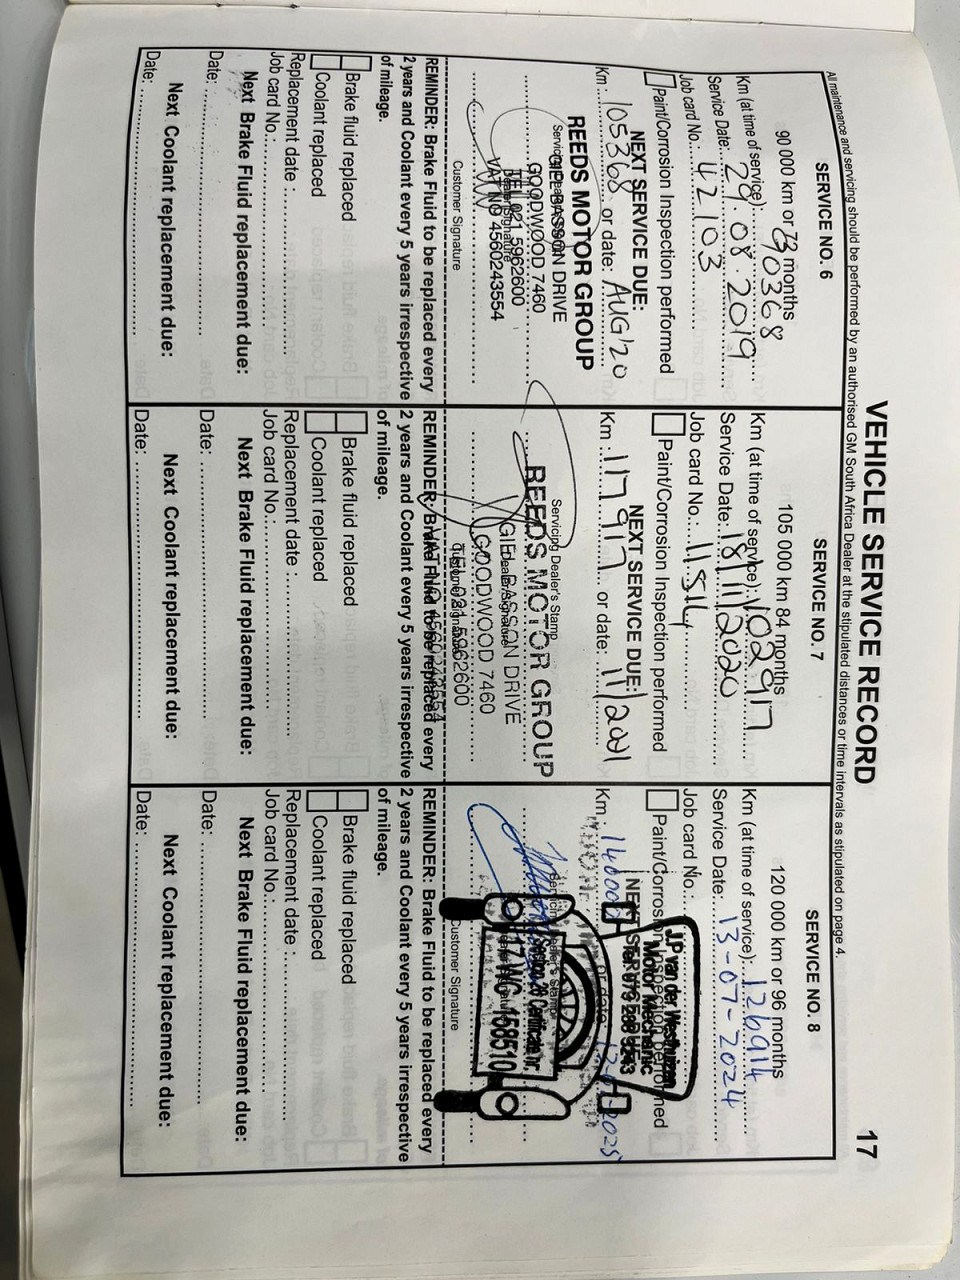 VEHICLE SERVICE RECORD
17
All maintenance and servicing should be performed by an authorised GM South Africa Dealer at the stipulated distances or time intervals as stipulated on page 4.
SERVICE NO. 6
90 000 km or 72 months
Km (at time of service): 90368
Service Date: 29.08.2019
Job card No.: 42103
Paint/Corrosion Inspection performed
NEXT SERVICE DUE:
Km: 105368 or date: AUG'20
REEDS MOTOR GROUP
Servicing Dealer's Stamp
GIE BASSON DRIVE
GOODWOOD 7460
Dealer Signature
TEL 021 5962600
VAT NO 4560243554
Customer Signature
REMINDER: Brake Fluid to be replaced every
2 years and Coolant every 5 years irrespective
of mileage.
Brake fluid replaced
Coolant replaced
Replacement date :
Job card No.:
Next Brake Fluid replacement due:
Date:
Next Coolant replacement due:
Date:
SERVICE NO. 7
105 000 km 84 months
Km (at time of service): 102917
Service Date: 18/11/2020
Job card No.: 11854
Paint/Corrosion Inspection performed
NEXT SERVICE DUE:
Km: 117917 or date: 11/2021
Servicing Dealer's Stamp
REEDS MOTOR GROUP
GIE BASSON DRIVE
Dealer Signature
GOODWOOD 7460
TEL 021 5962600
Customer Signature
REMINDER: Brake Fluid to be replaced every
2 years and Coolant every 5 years irrespective
of mileage.
Brake fluid replaced
Coolant replaced
Replacement date :
Job card No.:
Next Brake Fluid replacement due:
Date:
Next Coolant replacement due:
Date:
SERVICE NO. 8
120 000 km or 96 months
Km (at time of service): 126914
Service Date: 13-07-2024
Job card No.:
Paint/Corrosion Inspection performed
J.P van der Westhuizen
Motor Mechanic
NEXT SERVICE
Km: 140000 or date: 2025
Servicing Dealer's Stamp
Section 28 Certificate nr.
17 NO. 158510
Customer Signature
REMINDER: Brake Fluid to be replaced every
2 years and Coolant every 5 years irrespective
of mileage.
Brake fluid replaced
Coolant replaced
Replacement date :
Job card No.:
Next Brake Fluid replacement due:
Date:
Next Coolant replacement due:
Date: